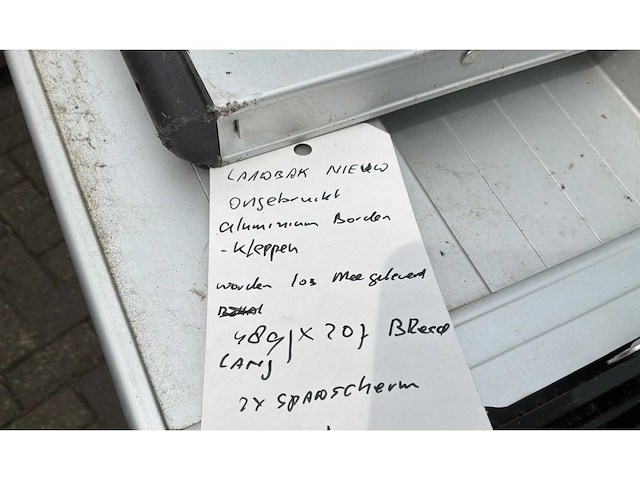 LAADBAK NIEUW
ongebruikt
aluminium Borden
- Kleppen
worden los Meegeleverd
489 X 207 BReed
LANG
2X SPADSCHERM